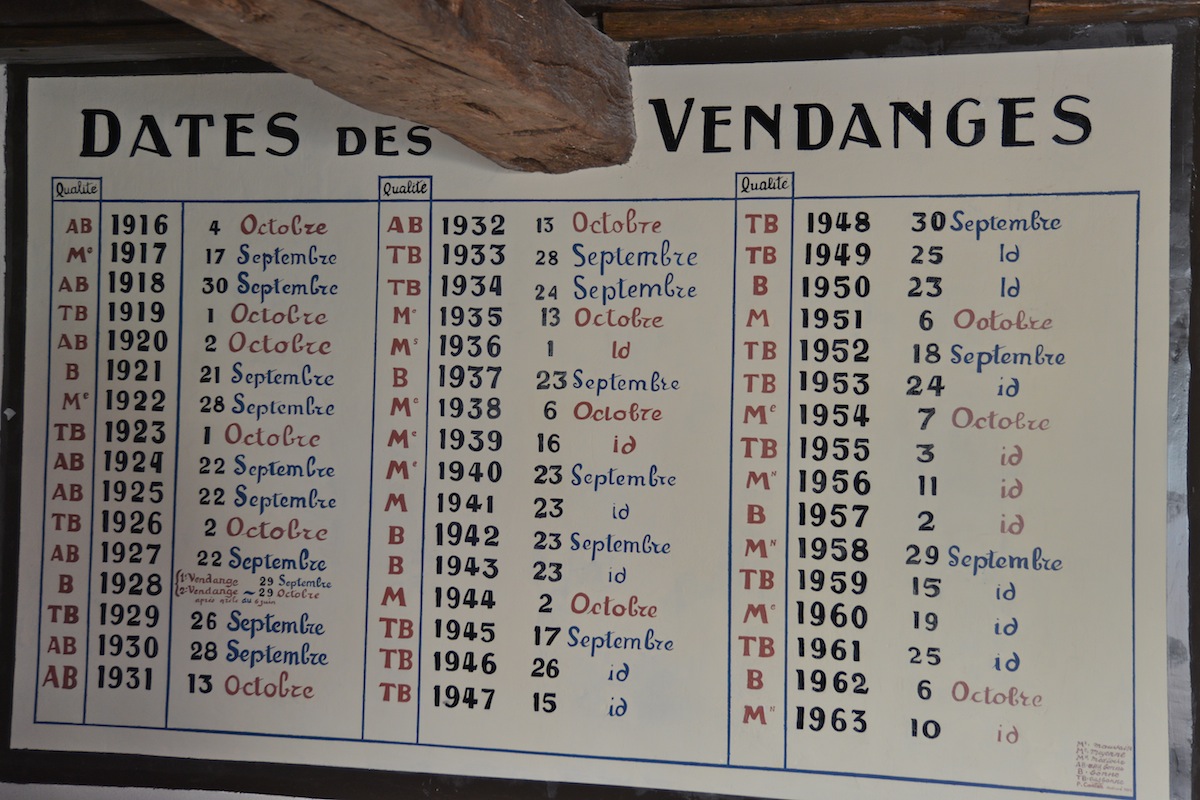 DATES DES VENDANGES
Qualité
AB 1916 4 Octobre
Me 1917 17 Septembre
AB 1918 30 Septembre
TB 1919 1 Octobre
AB 1920 2 Octobre
B 1921 21 Septembre
Me 1922 28 Septembre
TB 1923 1 Octobre
AB 1924 22 Septembre
AB 1925 22 Septembre
TB 1926 2 Octobre
AB 1927 22 Septembre
B 1928 1e Vendange 29 Septembre
2e Vendange ~ 29 Octobre
après grêle du 6 juin
TB 1929 26 Septembre
AB 1930 28 Septembre
AB 1931 13 Octobre
Qualité
AB 1932 13 Octobre
TB 1933 28 Septembre
TB 1934 24 Septembre
Me 1935 13 Octobre
Ms 1936 1 Id
B 1937 23 Septembre
Me 1938 6 Octobre
Me 1939 16 id
Me 1940 23 Septembre
M 1941 23 id
B 1942 23 Septembre
B 1943 23 id
M 1944 2 Octobre
TB 1945 17 Septembre
TB 1946 26 id
TB 1947 15 id
Qualité
TB 1948 30 Septembre
TB 1949 25 Id
B 1950 23 Id
M 1951 6 Octobre
TB 1952 18 Septembre
TB 1953 24 id
Me 1954 7 Octobre
TB 1955 3 id
MN 1956 11 id
B 1957 2 id
MN 1958 29 Septembre
TB 1959 15 id
Me 1960 19 id
TB 1961 25 id
B 1962 6 Octobre
M 1963 10 id
B - Bonne